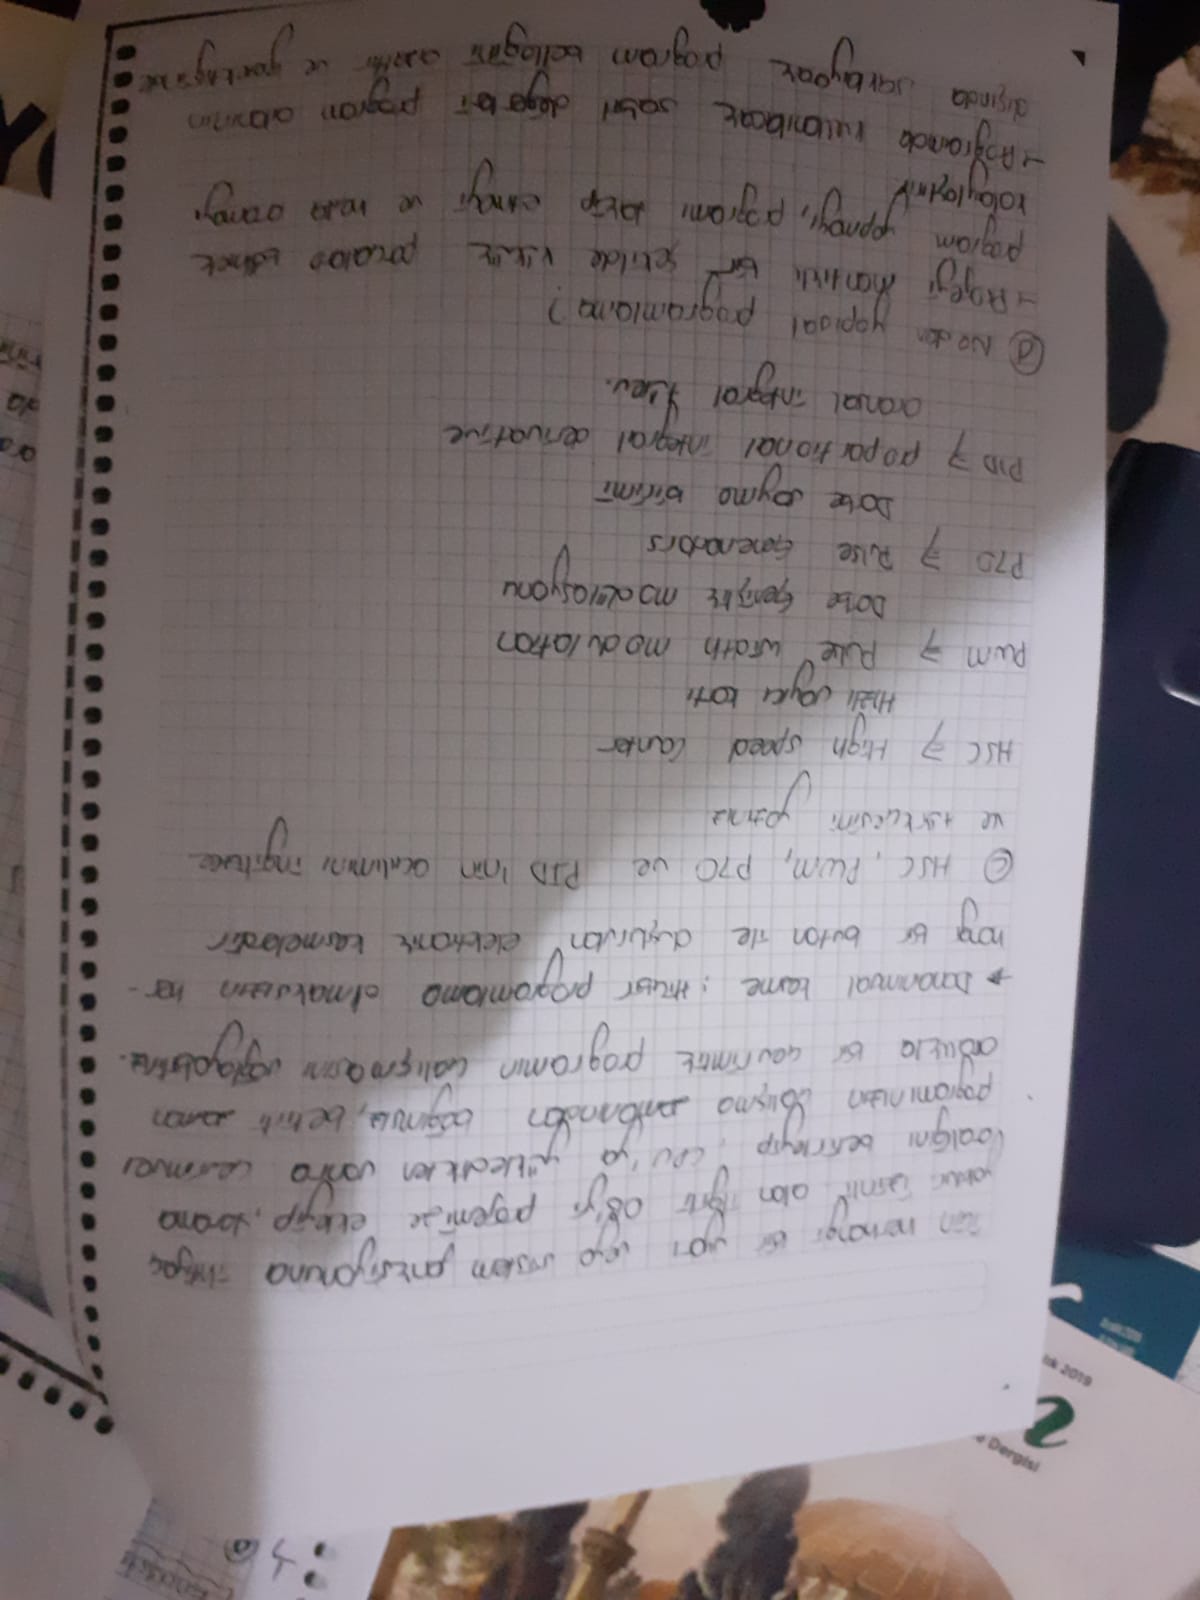 Dergisi
2
için herhangi bir yapı veya sistem fonksiyonuna ihtiyaç
yoktur. İsmi olan ilgili OB'yi projemize ekleyip, tarama
aralığını belirleyip, CPU'ya yükledikten sonra çevrimsel
programınızın çalışma zamanından bağımsız, belirli zaman
aralıkla bir çevrimlik programın çalışmasını sağlayabiliriz.
→ Donanımsal kesme : Hiçbir programlama olmaksızın her-
hangi bir buton ile oluşturulan elektronik kesmelerdir
c) HSC, PWM, PTO ve PID 'nin açılımını ingilizce
ve türkçesini yazınız
HSC ⇒ High speed Canter
Hızlı sayıcı kartı
PWM ⇒ Pulse width modulation
Darbe Genişlik modülasyonu
PTO ⇒ Pulse Generators
Darbe sayma birimi
PID ⇒ proportional integral derivative
oransal integral türev.
d) Neden yapısal programlama?
→ Projeyi mantıklı bir şekilde küçük parçalara bölmek
program yapmayı, programı takip etmeyi ve hata aramayı
kolaylaştırır
→ Programda kullanılacak sabit değerleri program alanının
dışında saklayarak program belleğini azaltır ve